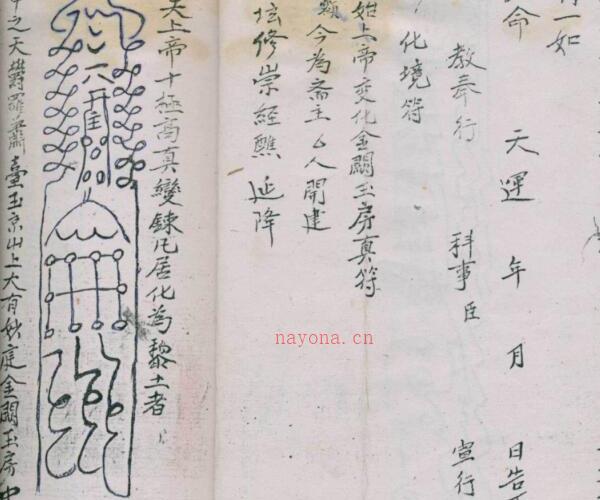 一如
命 天運 年 月 日告
教奉行 科事臣 宣行
化境符
始上帝变化金闕玉房真符
今為斋主厶人開建
坛修崇经醮 延降
天上帝十極高真變鍊凡居化為黎土者
之天欝羅蕭臺玉京山上大有妙庭金闕玉房中
nayona.cn